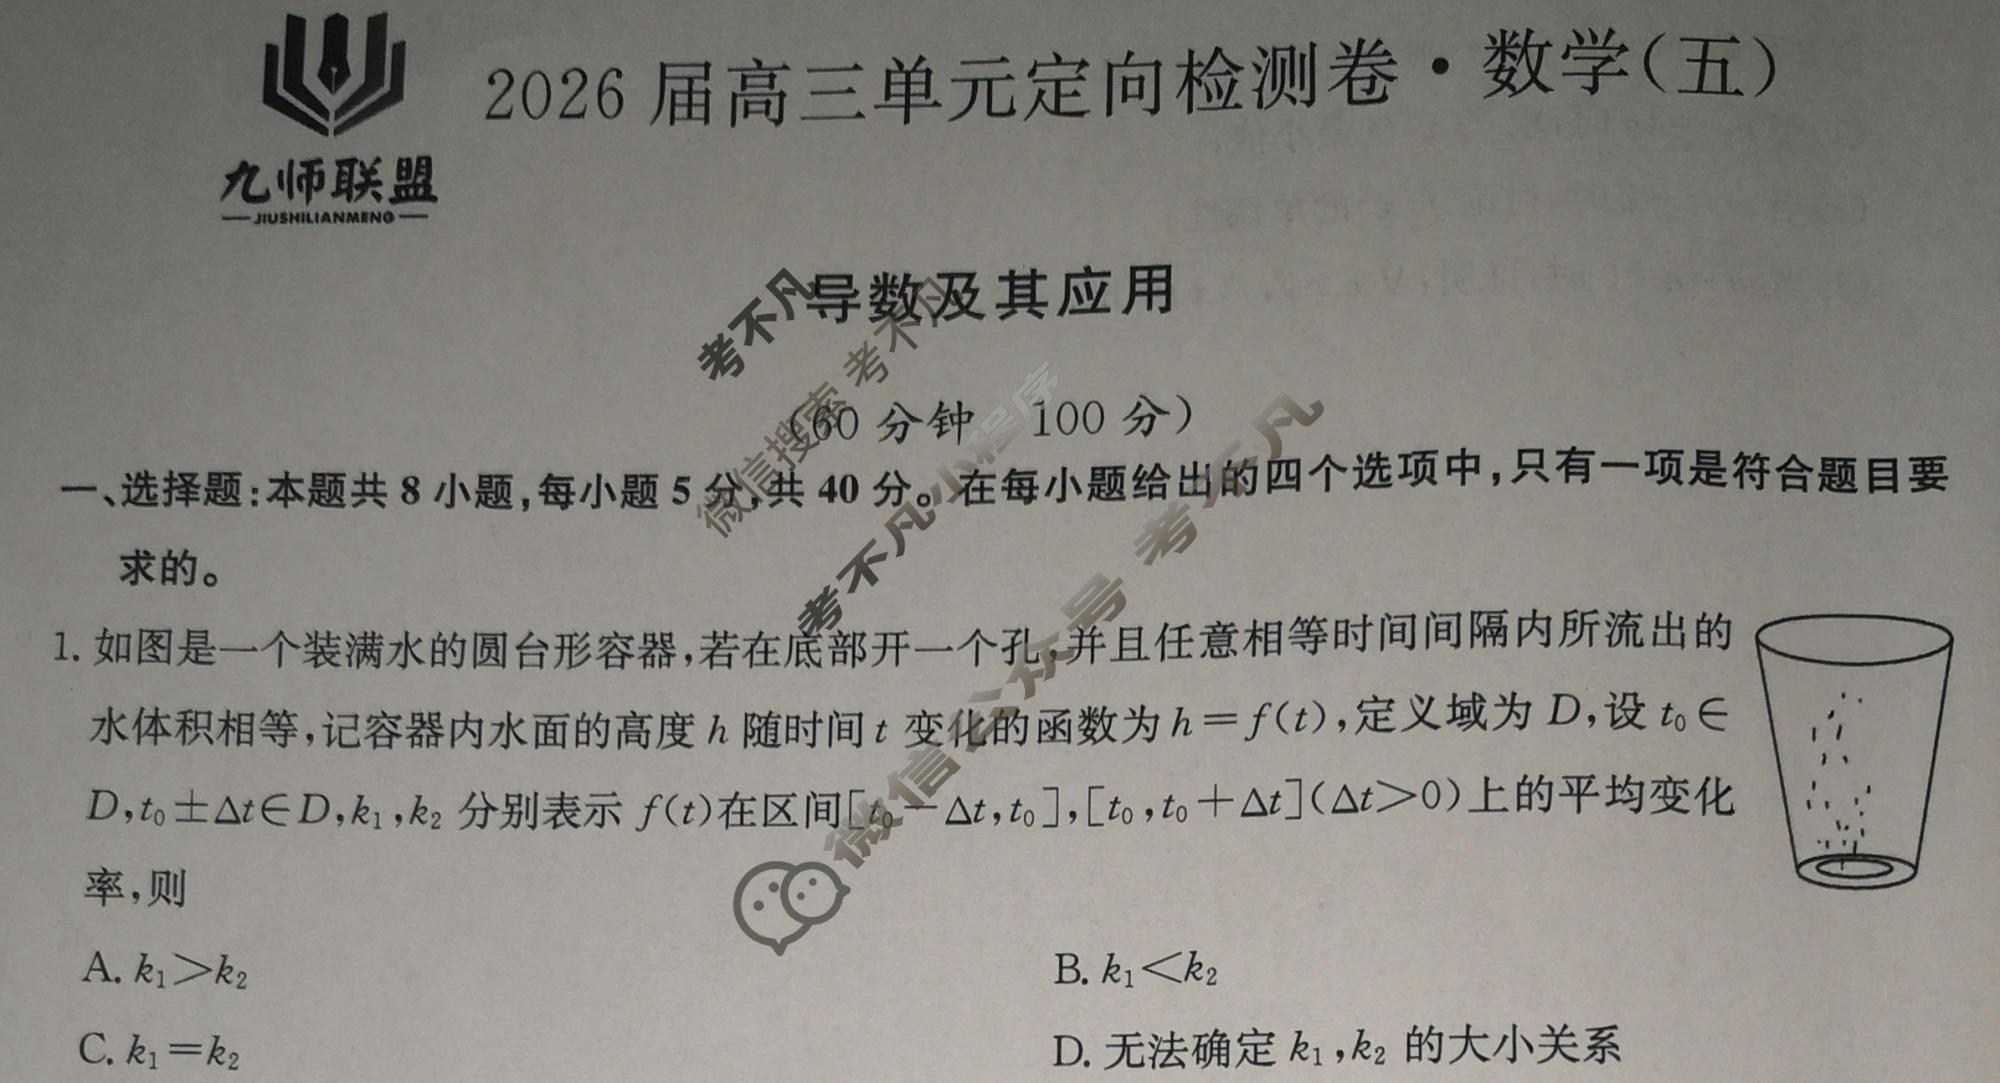 2026届高三单元定向检测卷·数学(五)
九师联盟
JIUSHILIANMENG
导数及其应用
(60分钟 100分)
一、选择题:本题共8小题,每小题5分,共40分。在每小题给出的四个选项中,只有一项是符合题目要
求的。
1. 如图是一个装满水的圆台形容器,若在底部开一个孔,并且任意相等时间间隔内所流出的
水体积相等,记容器内水面的高度 h 随时间 t 变化的函数为 h=f(t),定义域为 D,设 t₀∈
D,t₀±Δt∈D,k₁,k₂ 分别表示 f(t)在区间[t₀-Δt,t₀],[t₀,t₀+Δt](Δt>0)上的平均变化
率,则
A. k₁>k₂
B. k₁<k₂
C. k₁=k₂
D. 无法确定 k₁,k₂ 的大小关系
考不凡
微信搜索 考不凡
考不凡小程序
微信公众号 考不凡